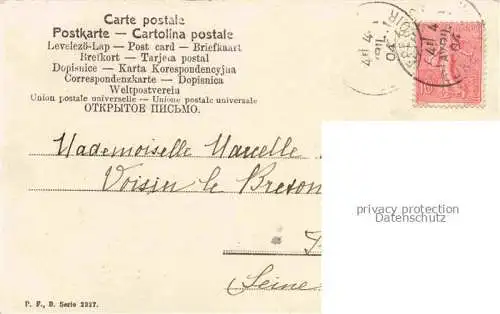 Carte postale
Postkarte — Cartolina postale
Levelező-Lap — Post card — Briefkaart
Brefkort — Tarjeta postal
Dopisnice — Karta Korespondencyjna
Correspondenzkarte — Dopisnica
Weltpostverein
Union postale universelle — Unione postale universale
ОТКРЫТОЕ ПИСЬМО.
4 4
AVRIL
04
4 4
AVRIL
04
10
Mademoiselle Marcelle
Voisin le Breton
Seine
privacy protection
Datenschutz
P. F., B. Serie 2327.